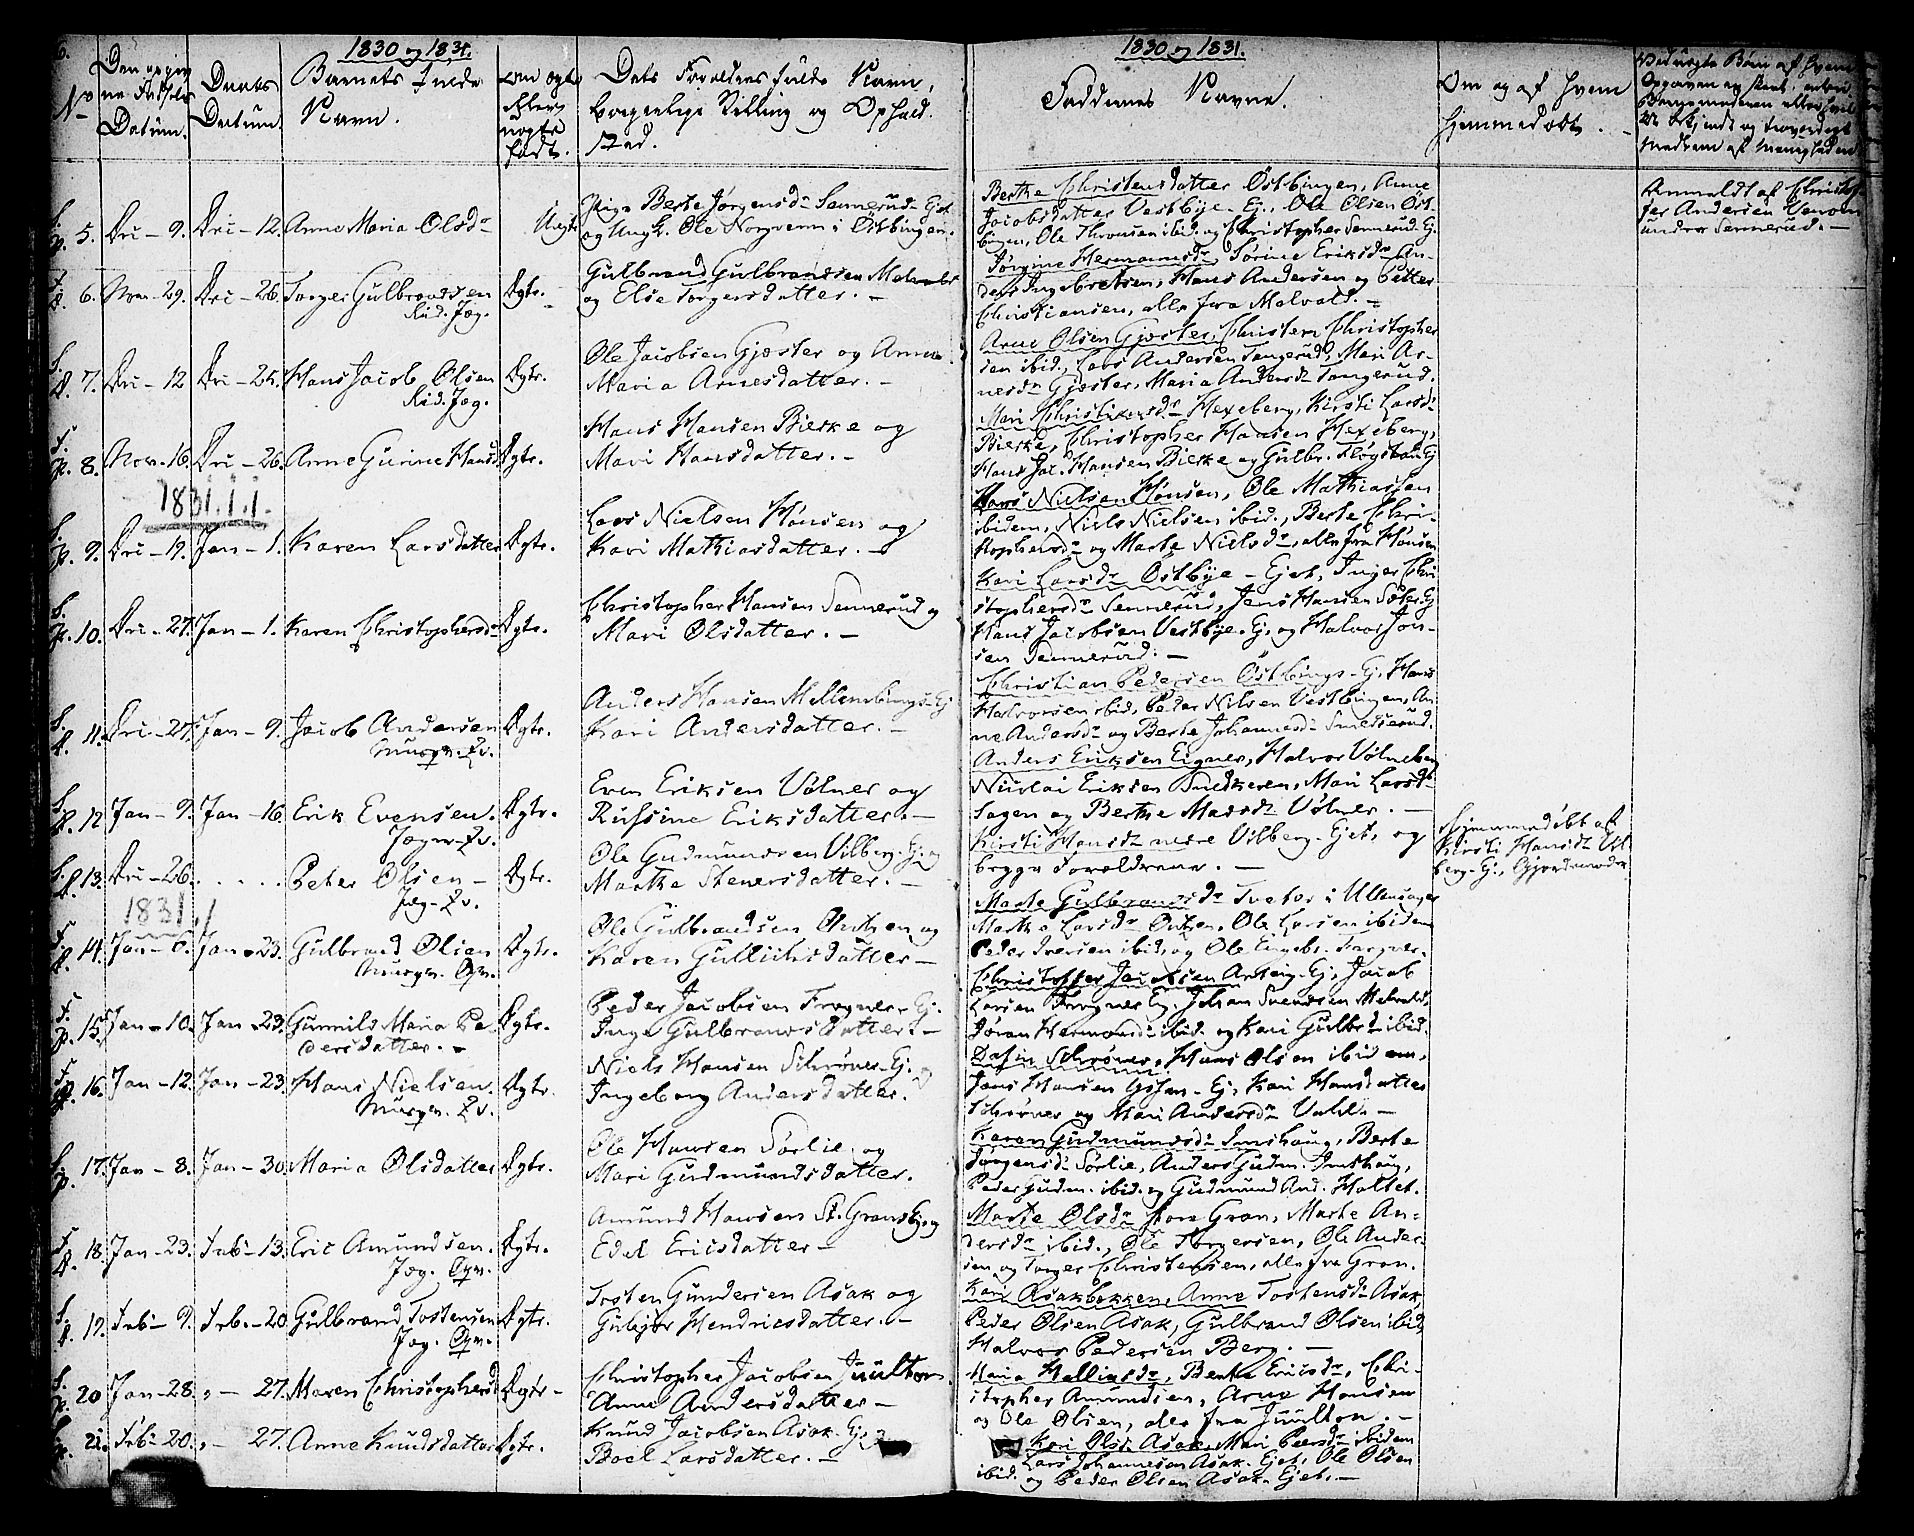 1830 og 1831.
No
Datum.
Daabs Datum.
Barnets fulde Navn.
Dets Forældres fulde Navn,
borgerlige Stilling og Ophold.
Sted.
5. Dec - 9. Dec - 12. Anne Maria Olsdr Uægte
Pige Berte Jørgensdr Sennerud - Ejet
og Ungk. Ole Norgvem i Østbingen.
6. Nov - 29. Dec - 26. Torger Gulbrandsen Ægte.
Gulbrand Gulbrandsen
og Else Torgersdatter. -
7. Dec - 12 Dec - 25. Hans Jacob Olsen Ægte.
Ole Jacobsen Gjæster og Anne
Maria Arnesdatter. -
8. Nov. 16. Dec - 26. Anne Gurine Hansd. Ægte.
Hans Hansen Bierke og
Mari Hansdatter. -
1831. 1. 1.
9. Dec - 19. Jan - 1. Karen Larsdatter Ægte.
Lars Nielsen Hönsen og
Kari Mathiasdatter. -
10. Dec - 27. Jan - 1. Karen Christophersdr Ægte.
Christopher Hansen Sennerud og
Mari Olsdatter. -
11. Dec - 27. Jan - 9. Jacob Andersen Ægte.
Anders Hansen Mellembings - Ej
Kari Andersdatter. -
12 Jan - 9. Jan - 16. Erik Evensen. Ægte.
Even Eriksen Völner og
Russine Eriksdatter. -
13. Dec - 26. . . . . Peter Olsen - Ægte.
Ole Gudmundsen Vilberg - Ej og
Marthe Stenersdatter. -
1831. 1
14. Jan - 6. Jan - 23. Gulbrand Olsen Ægte.
Ole Gulbrandsen Onsen og
Karen Gullichsdatter -
15. Jan - 10. Jan - 23. Gunnild Maria Pe
dersdatter. - Ægte.
Peder Jacobsen Frogner - Ej.
Inge Gulbrandsdatter. -
16. Jan - 12. Jan - 23. Hans Nielsen. Ægte.
Niels Hansen Schrøver - Ej. og
Ingeborg Andersdatter.
17. Jan - 8. Jan - 30. Maria Olsdatter Ægte.
Ole Hansen Sörlie og
Mari Gudmundsdatter.
18. Jan - 23. Feb - 13. Eric Amundsen. Ægte.
Amund Hansen St. Gransej og
Edel Ericsdatter -
19. Feb - 9. Feb. - 20. Gulbrand Tostensen Ægte.
Tosten Gundersen Asak og
Gubjør Hendricsdatter. -
20 Jan - 28. " - 27. Maren Christophersd Ægte -
Christopher Jacobsen Juulton
Anne Andersdatter -
21. Feb - 20. " - 27. Anne Knudsdatter Ægte.
Knud Jacobsen Asak - Ej og
Boel Larsdatter. -
1830 og 1831.
Faddernes Navne.
Om og af hvem
hjemmedøbt.
Berthe Christensdatter Østbingen, Anne
Jacobsdatter Vestbye - Ej, Ole Olsen Øst-
bingen, Ole Thronsen ibid. og Christopher Sennerud - Ej.
Anmeldt af Christof-
fer Andersen
Sennerud. -
Jørgine Hermansdr, Sörine Eriksdr An-
ders Ingebretsen, Hans Andersen og Petter
Christiansen, alle fra Malvold. -
Arne Olsen Gjæster, Christen Christopher
sen ibid., Lars Andersen Tangerud, Mari Ar-
nesdr Gjæster, Maria Andersdr Tangerud.
Mari Christiansdr Hexeberg, Kirsti Larsdr
Bierke, Christopher Hansen Hexeberg,
Hans Jac. Hansen Bierke og Gulbr. Flögstad Ej
Lars Nielsen Hönsen, Ole Mathiassen
ibidem, Niels Nielsen ibid., Berte Chri-
stophersdr og Marte Nielsdr, alle fra Hönsen
Kari Larsdr Østbye - Ejet, Inger Chri
stophersdr Sennerud, Jens Hansen Sæter Ej
Hans Jacobsen Vestbye - Ej. og Halvor Jon-
sen Sennerud. -
Christian Pedersen Østbings - Ej, Hans
Halvorsen ibid, Peder Nilsen Vestbingen, An
ne Andersdr og Berte Johannesdr Smedserud.
Anders Eriksen Eigner, Halvor Völneberg
Nicolai Eriksen, Mari Larsdr
Hagen og Berthe Madsdr Völner. -
Kirsti Hansdr nedre Vilberg - Ejet, og
begge Forældrene. -
Hjemmedøbt af
Kirsti Hansdr Vil
berg - Ej, Gjordemoder
Marte Gulbrandsdr Tveter i Ullensager
Marthe Larsdr Onsen, Ole Larsen ibidem
Peder Iversen ibid, og Ole Engebr.
Christopher Jacobsen Arteig - Ej, Jacob
Larsen Frogner Ej, Johan Svendsen Melvold,
Jöran Hermandsdr ibid. og Kari Gulbrdr ibid.
Schrøver, Hans Olsen ibidem,
Jens Hansen - Ej, Kari Hansdatter
Schrøver og Mari Andersdr Vahl. -
Karen Gudmundsdr Imshaug, Berte
Jørgensdr Sörlie, Anders Gudm. Imshaug,
Peder Gudm. ibid. og Gudmund And. Holtet.
Marte Olsdr store Gran, Marte An-
dersdr ibid., Ole Torgersen, Ole Ander-
sen og Torger Christensen, alle fra Gran.
Kari Asakbekken, Anne Tostensdr Asak,
Peder Olsen Asak, Gulbrand Olsen ibid,
Halvor Pedersen Berg. -
Maria Helliesdr, Berthe Ericsdr, Chri-
stopher Amundsen, Arne Hansen
og Ole Olsen, alle fra Juulton. -
Kari Olsd. Asak, Mari Peersdr ibidem
Lars Johannesen Asak - Ejet, Ole Olsen
ibid. og Peder Olsen Asak - Ejet. -